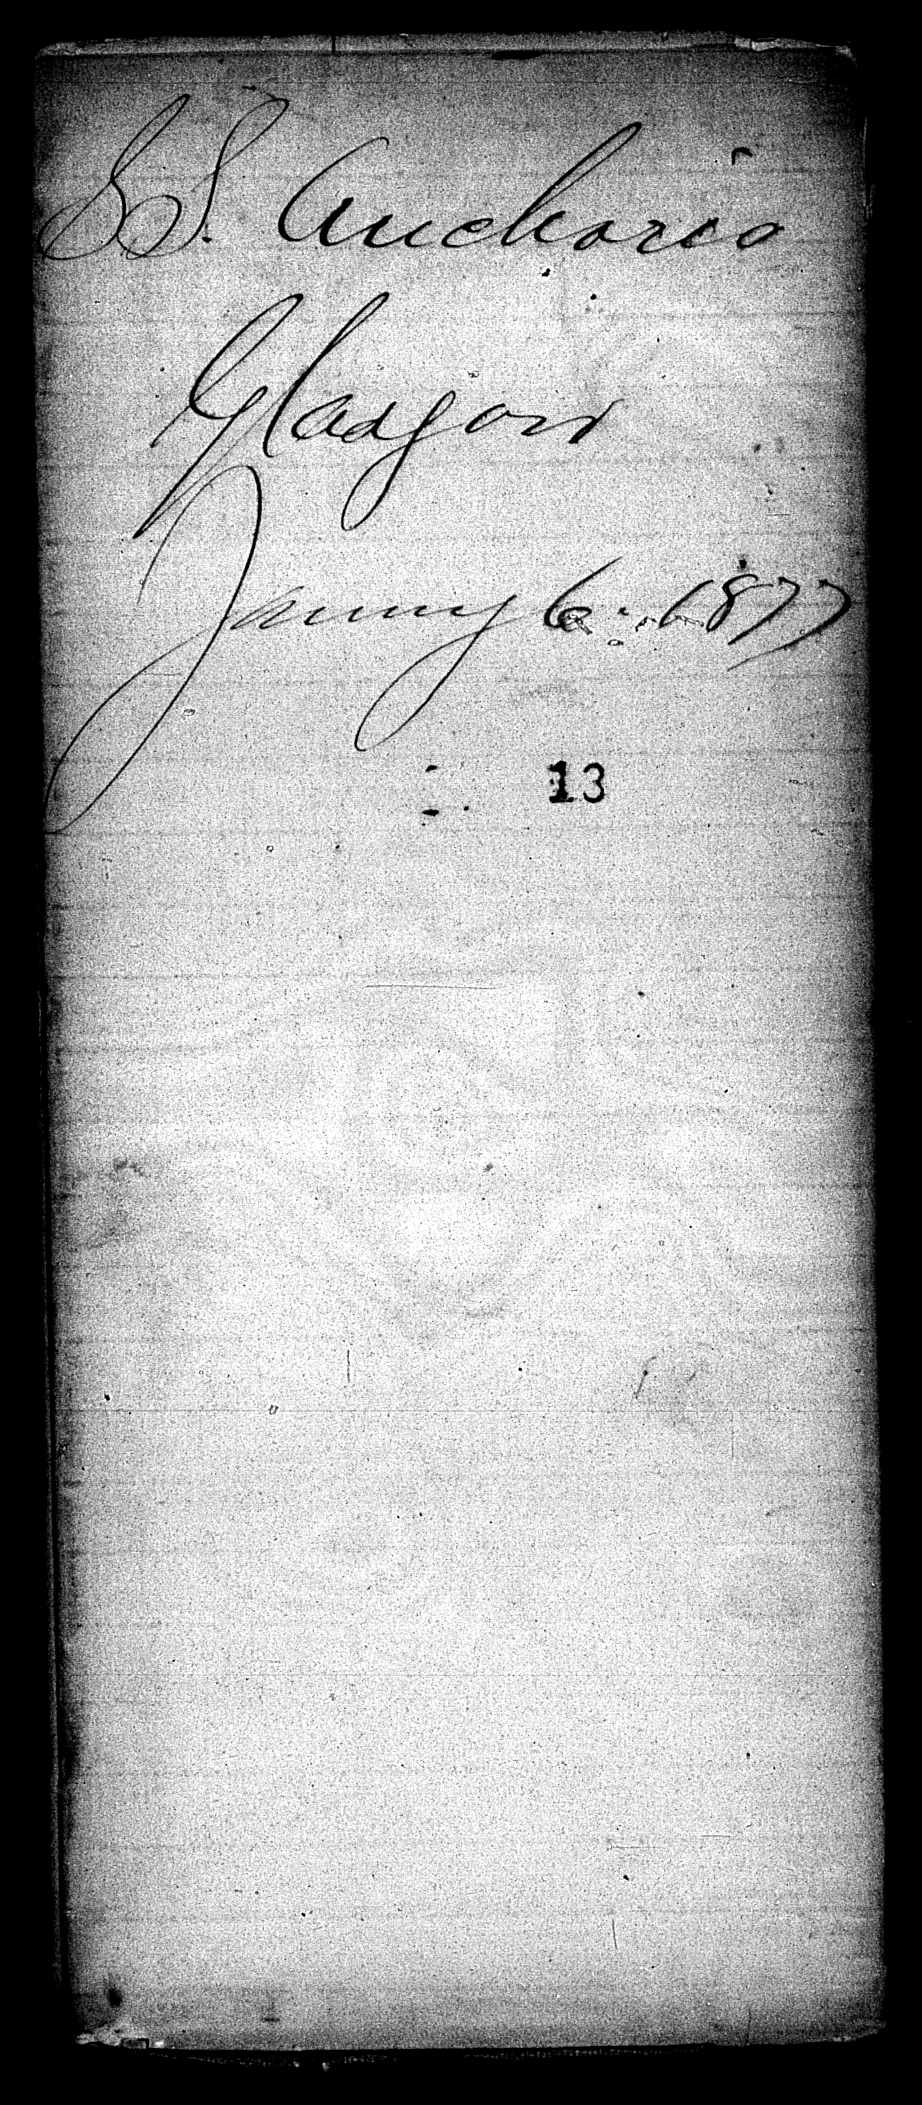 SS. Anchoria
Glasgow
January 6. 1877
13